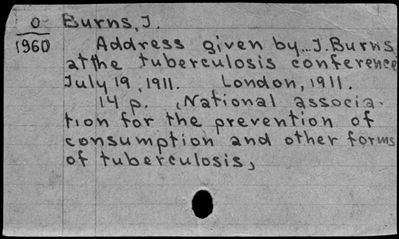 O Burns, J.
1960 Address given by...J. Burns
at the tuberculosis conference
July 19, 1911. London, 1911.
14 p. (National associa-
tion for the prevention of
consumption and other forms
of tuberculosis)